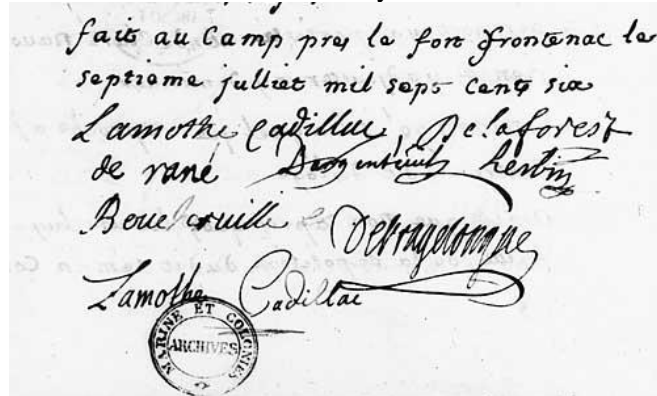 fait au Camp pres le fort frontenac le
septieme julliet mil sept Cent six
Lamothe Cadillac Delaforest
de rané Dargenteuil hertin
Boucherville
Lamothe Cadillac
MARINE ET COLONIES
ARCHIVES